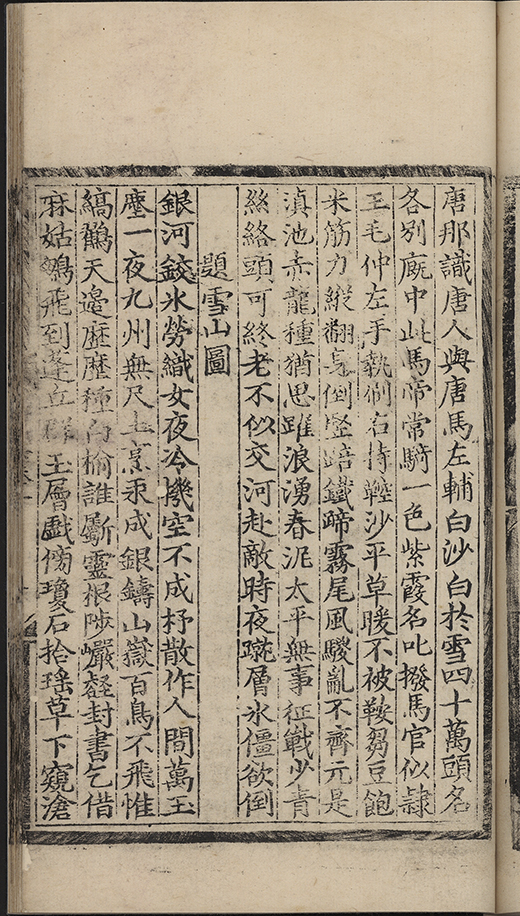 唐那識唐人與唐馬左輔白沙白於雪四十萬頭名
各別廐中此馬帝常騎一色紫霞名叱撥馬官似隷
王毛仲左手執制右持鞚沙平草暖不被鞍芻豆飽
来筋力縱翻身倒竪踣鐵蹄霧尾風騣亂不齊元是
滇池赤龍種猶思躍浪湧春泥太平無事征戰少青
絲絡頭可終老不似交河赴敵時夜蹴層氷僵欲倒
題雪山圖
銀河鉸氷勞織女夜冷機空不成杼散作人間萬玉
塵一夜九州無尺土烹汞成銀鑄山嶽百鳥不飛惟
縞鶴天邊歷歷種白榆誰斸靈根陟巉礙封書乞借
麻姑鷞飛到蓬立群玉層戱傍瓊石拾瑶草下窺滄